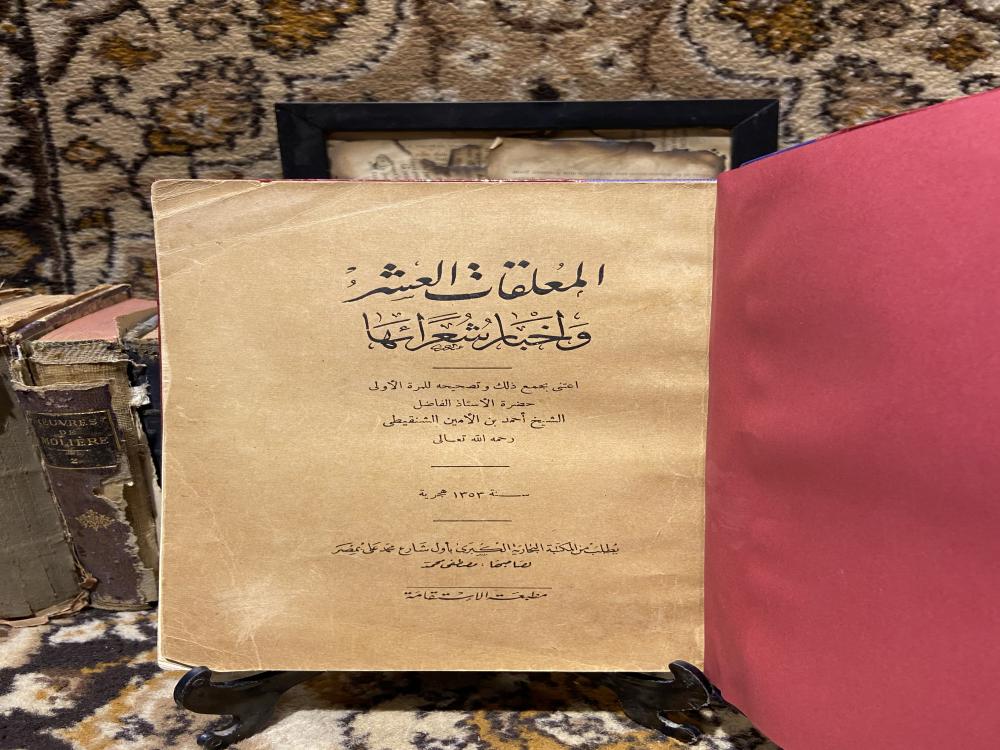 المعلقات العشر
وأخبار شعرائها
اعتنى بجمع ذلك وتصحيحه للمرة الأولى
حضرة الأستاذ الفاضل
الشيخ أحمد بن الأمين الشنقيطى
رحمه الله تعالى
سنة ١٣٥٣ هجرية
يطلب من المكتبة التجارية الكبرى بأول شارع محمد على بمصر
لصاحبها : مصطفى محمد
مطبعة الاستقامة
ŒUVRES
DE
MOLIÈRE
2